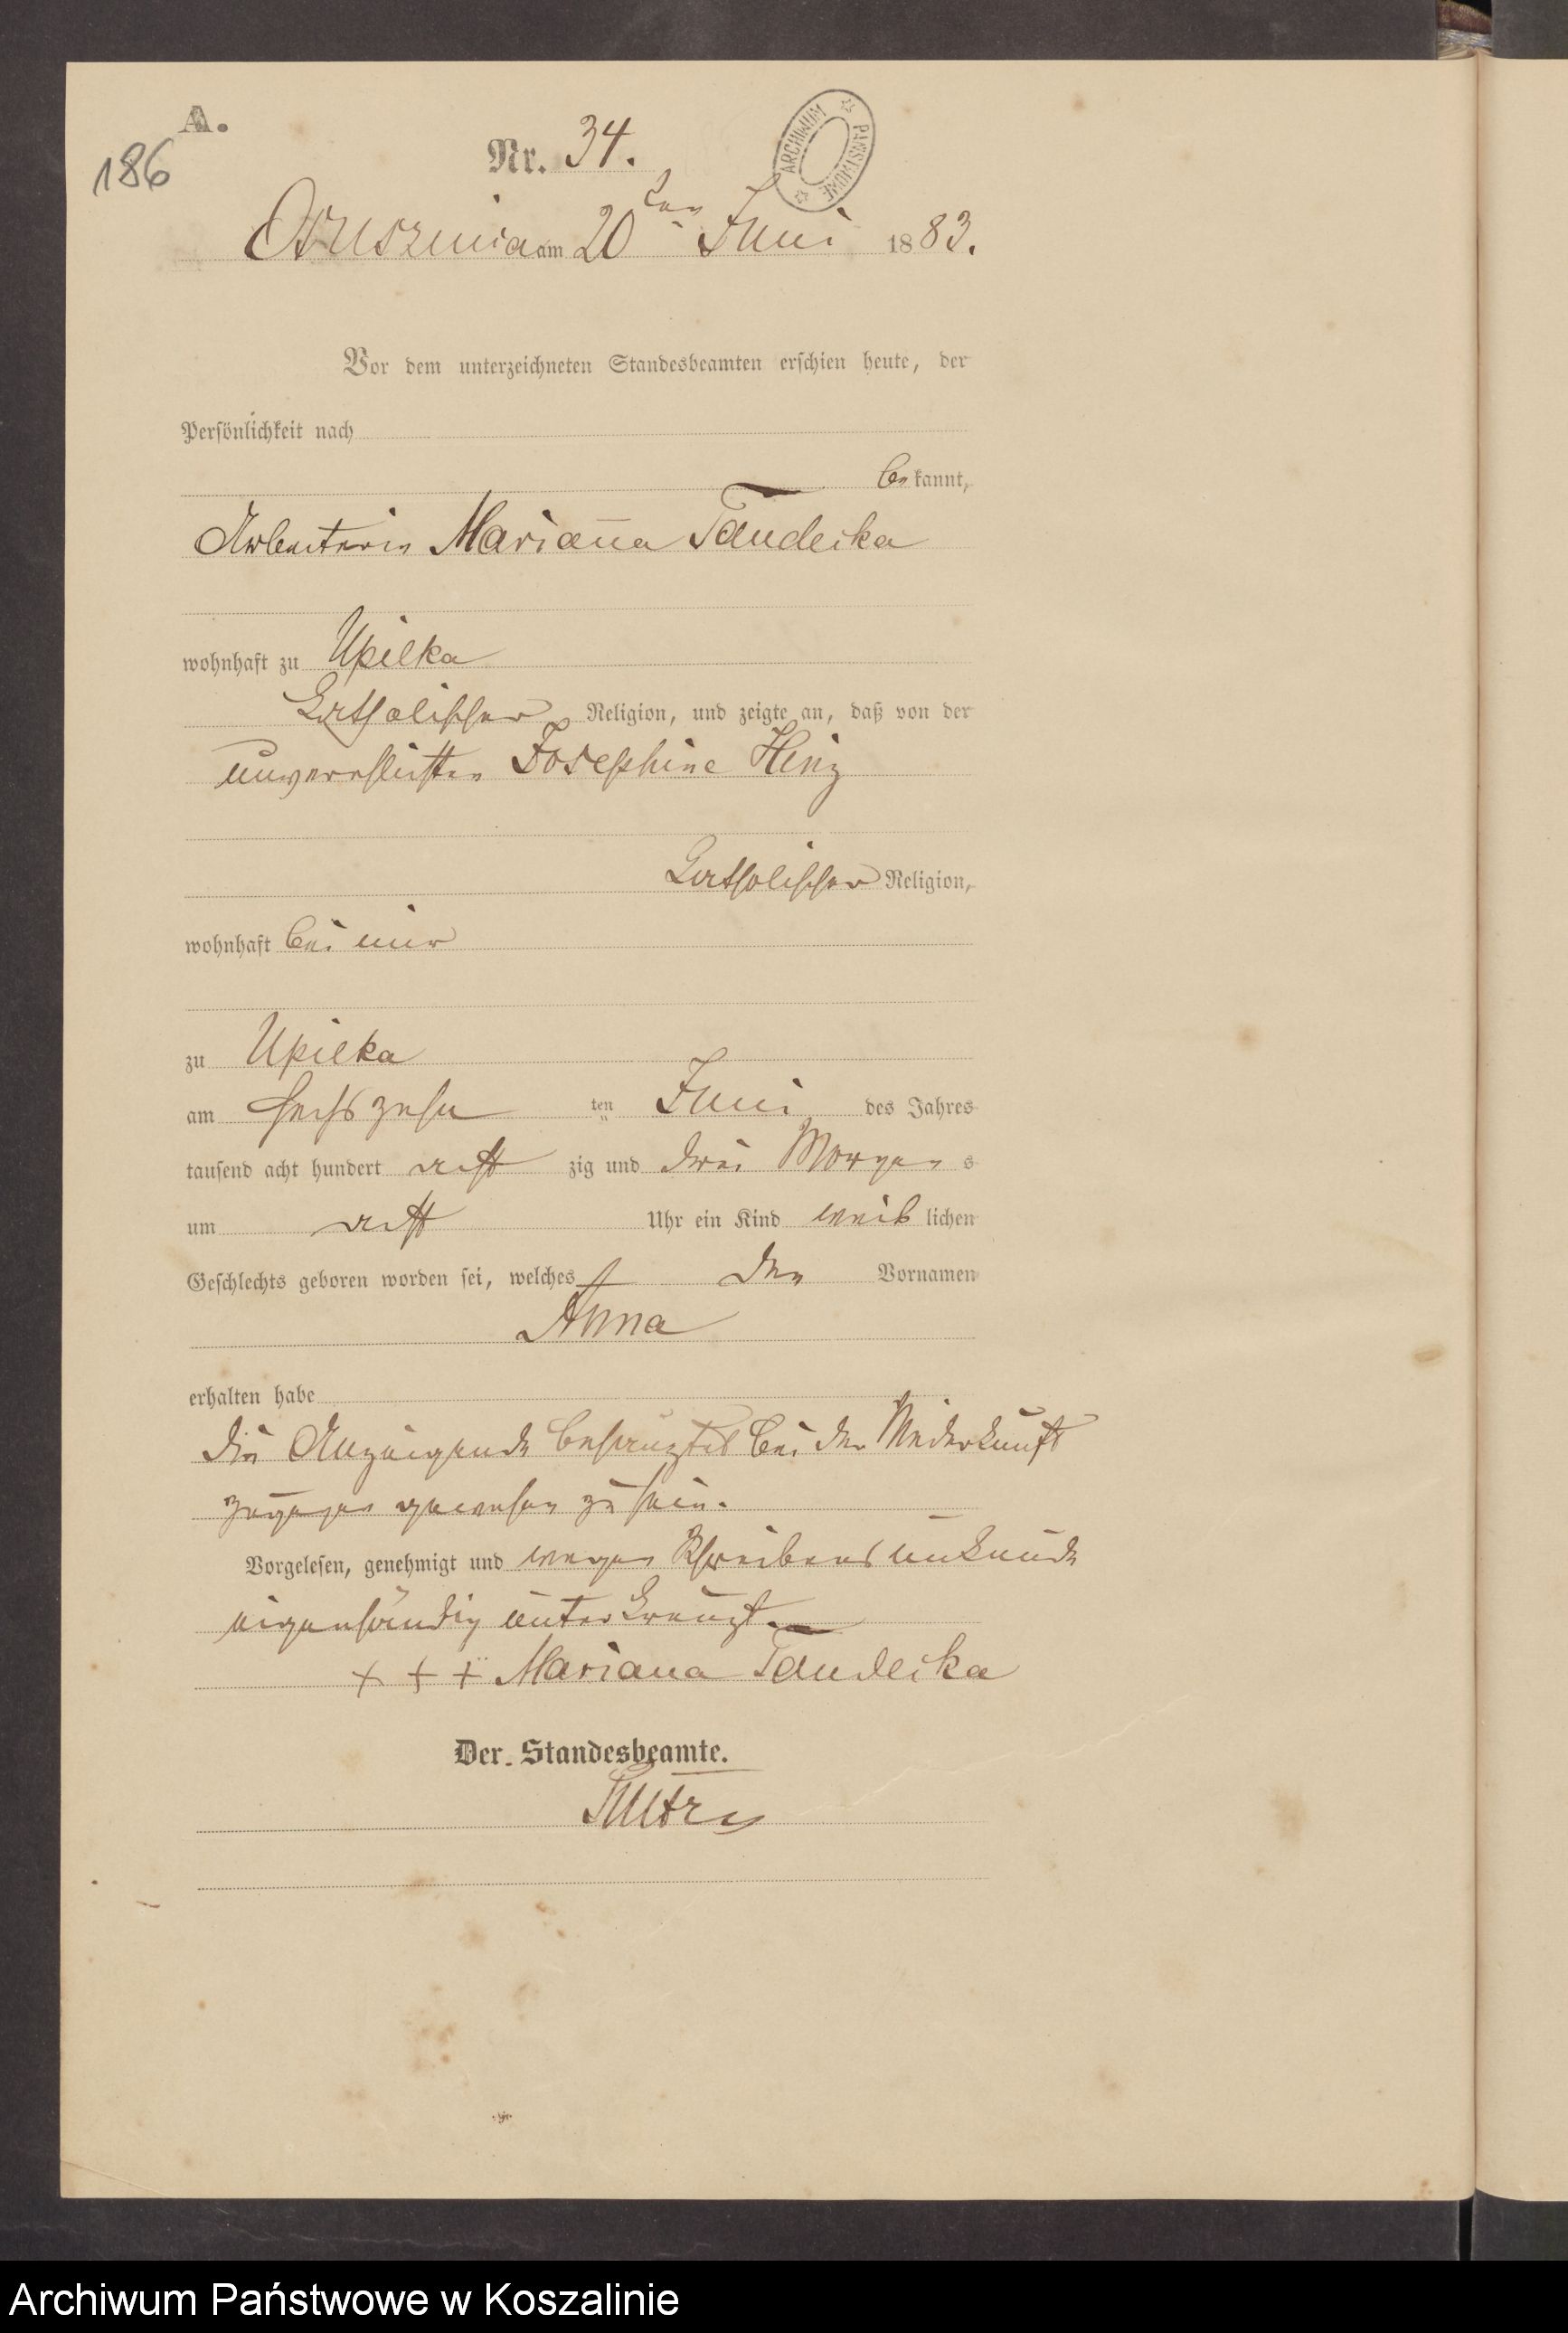 A.
186
Nr. 34.
ARCHIWUM PAŃSTWOWE
Osuszniça am 20ten Juni 1883.
Vor dem unterzeichneten Standesbeamten erschien heute, der
Persönlichkeit nach
bekannt,
Arbeiterin Marianna Taudeika
wohnhaft zu Upilka
Katholischer Religion, und zeigte an, daß von der
unverehlichten Josephine Hinz
Katholischer Religion,
wohnhaft bei mir
zu Upilka
am sechszehn ten Juni des Jahres
tausend acht hundert acht zig und drei Morgens
um acht Uhr ein Kind weiblichen
Geschlechts geboren worden sei, welches den Vornamen
Anna
erhalten habe
die Anzeigende bekreuztes bei der Niederkunft
zugegen gewesen zu sein.
Vorgelesen, genehmigt und wegen Schreibens unkunde
eigenhändig unterkreuzt.
+ + + Mariana Taudeika
Der Standesbeamte.
Archiwum Państwowe w Koszalinie